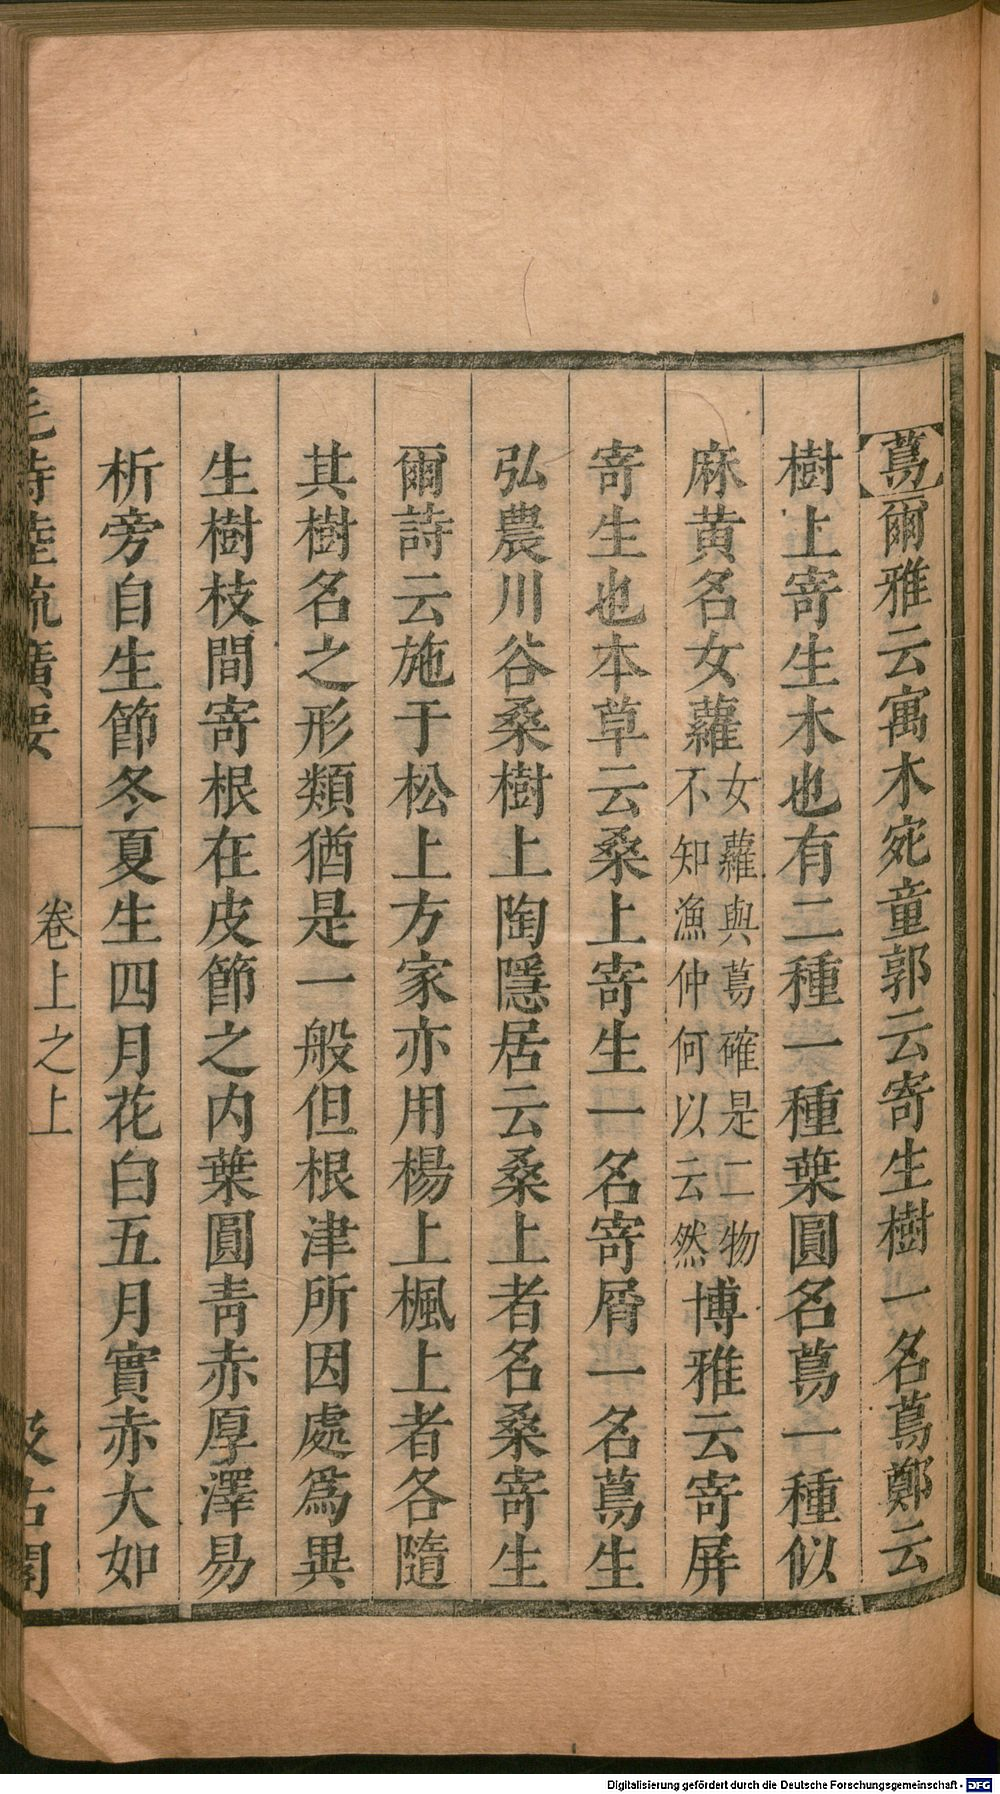 蔦爾雅云寓木宛童郭云寄生樹一名蔦鄭云
樹上寄生木也有二種一種葉圓名蔦一種似
麻黄名女蘿
女蘿與蔦確是二物
不知漁仲何以云然
博雅云寄屏
寄生也本草云桑上寄生一名寄屑一名蔦生
弘農川谷桑樹上陶隱居云桑上者名桑寄生
爾詩云施于松上方家亦用楊上楓上者各隨
其樹名之形類猶是一般但根津所因處爲異
生樹枝間寄根在皮節之内葉圓青赤厚澤易
析旁自生節冬夏生四月花白五月實赤大如
毛詩陸疏廣要
卷上之上
汲古閣
Digitalisierung gefördert durch die Deutsche Forschungsgemeinschaft - DFG